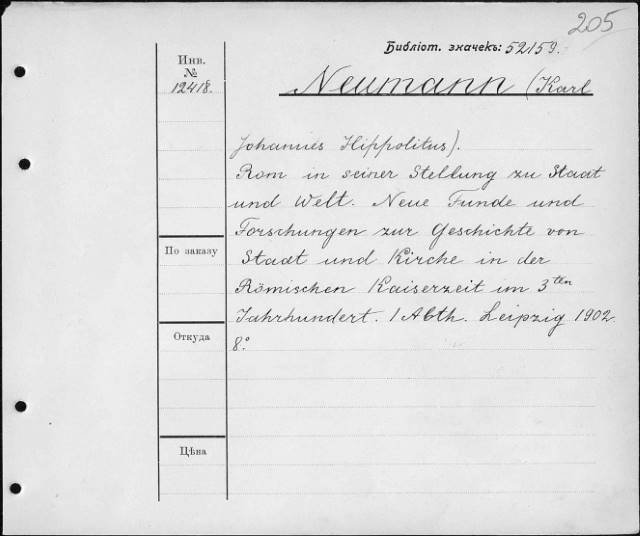 205
Библіот. значекъ: 52159.
Инв.
№
12418.
Neumann (Karl
Johannes Hippolitus).
Rom in seiner Stellung zu Staat
und Welt. Neue Funde und
Forschungen zur Geschichte von
Staat und Kirche in der
Römischen Kaiserzeit im 3ten
Jahrhundert. 1 Abth. Leipzig 1902
8:°
По заказу
Откуда
Цѣна